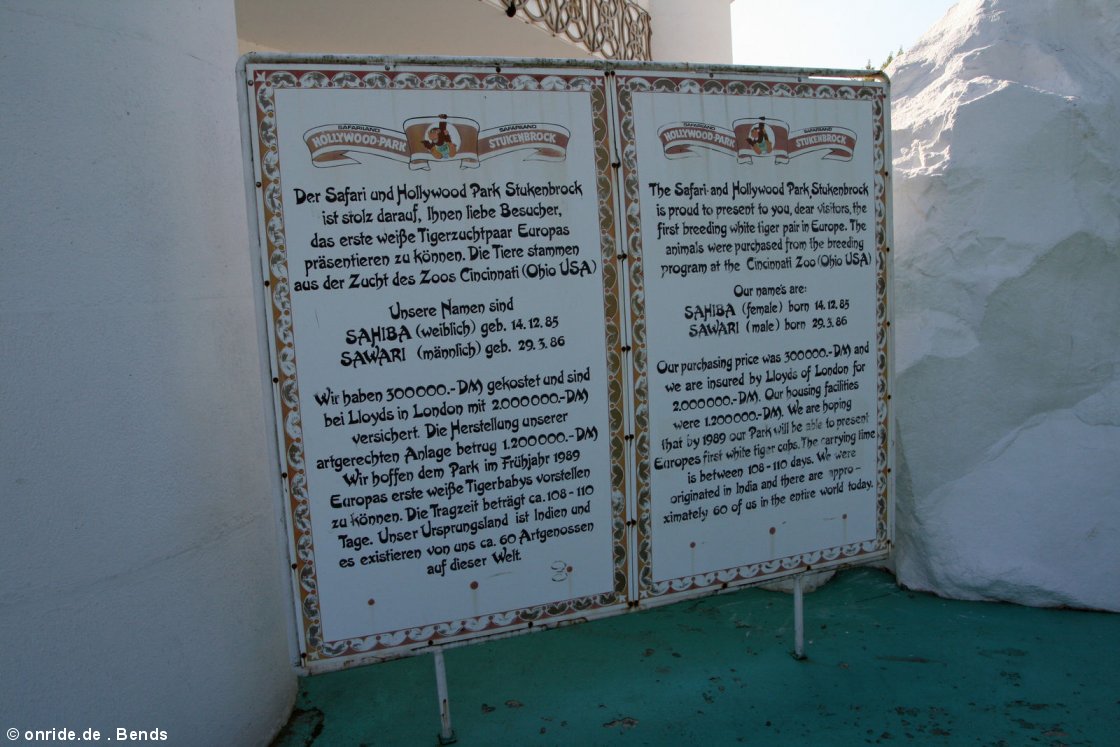 SAFARILAND SAFARILAND
HOLLYWOOD-PARK STUKENBROCK
Der Safari und Hollywood Park Stukenbrock
ist stolz darauf, Ihnen liebe Besucher,
das erste weiße Tigerzuchtpaar Europas
präsentieren zu können. Die Tiere stammen
aus der Zucht des Zoos Cincinnati (Ohio USA)
Unsere Namen sind
SAHIBA (weiblich) geb. 14.12.85
SAWARI (männlich) geb. 29.3.86
Wir haben 300000.-DM gekostet und sind
bei Lloyds in London mit 2.000000.-DM
versichert. Die Herstellung unserer
artgerechten Anlage betrug 1.200000.-DM
Wir hoffen dem Park im Frühjahr 1989
Europas erste weiße Tigerbabys vorstellen
zu können. Die Tragzeit beträgt ca. 108-110
Tage. Unser Ursprungsland ist Indien und
es existieren von uns ca. 60 Artgenossen
auf dieser Welt.
SAFARILAND SAFARILAND
HOLLYWOOD-PARK STUKENBROCK
The Safari-and Hollywood Park, Stukenbrock
is proud to present to you, dear visitors, the
first breeding white tiger pair in Europe. The
animals were purchased from the breeding
program at the Cincinnati Zoo (Ohio USA)
Our name's are:
SAHIBA (female) born 14.12.85
SAWARI (male) born 29.3.86
Our purchasing price was 300000.-DM and
we are insured by Lloyds of London for
2.000000.-DM. Our housing facilities
were 1.200000.-DM. We are hoping
that by 1989 our Park will be able to present
Europes first white tiger cubs. The carrying time
is between 108-110 days. We were
originated in India and there are appro-
ximately 60 of us in the entire world today.
© onride.de . Bends